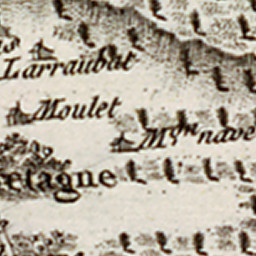 is
Larraubat
Moulet
M.on nave
etagne